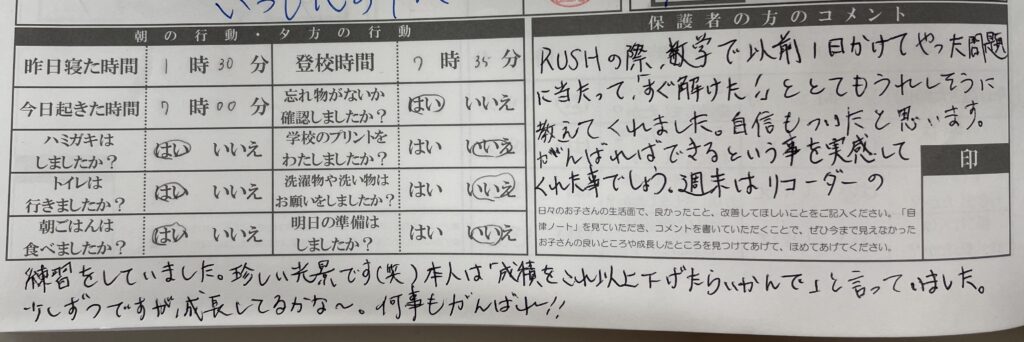 保護者の方のコメント
朝の行動・夕方の行動
昨日寝た時間 1時30分 登校時間 7時35分
今日起きた時間 7時00分 忘れ物がないか確認しましたか? はい いいえ
ハミガキはしましたか? はい いいえ 学校のプリントをわたしましたか? はい いいえ
トイレは行きましたか? はい いいえ 洗濯物や洗い物はお願いをしましたか? はい いいえ
朝ごはんは食べましたか? はい いいえ 明日の準備はしましたか? はい いいえ
RUSHの際、数学で以前1日かけてやった問題
に当たって、「すぐ解けた!」ととてもうれしそうに
教えてくれました。自信もついたと思います。
がんばればできるという事を実感して
くれた事でしょう。週末はリコーダーの
印
日々のお子さんの生活面で、良かったこと、改善してほしいことをご記入ください。「自
律ノート」を見ていただき、コメントを書いていただくことで、ぜひ今まで見えなかった
お子さんの良いところや成長したところを見つけてあげて、ほめてあげてください。
練習をしていました。珍しい光景です(笑)本人は「成績をこれ以上下げたらいかんで」と言っていました。
少しずつですが、成長してるかな〜。何事もがんばれー!!